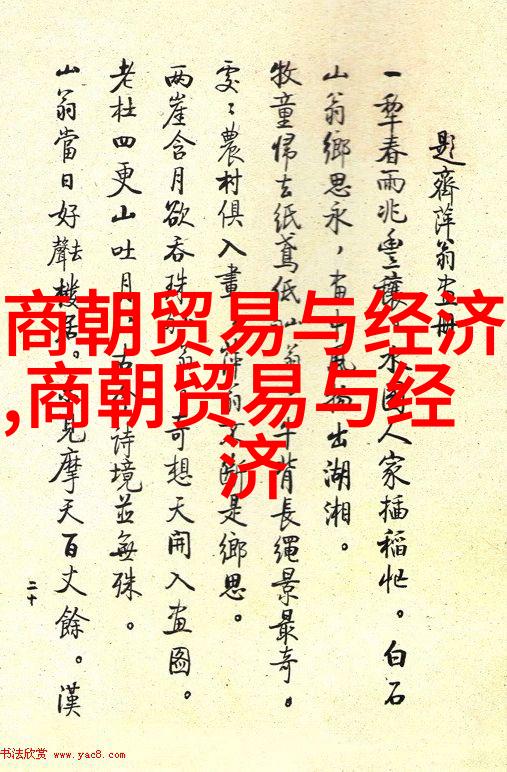 題齊萍翁画册
一犁春雨兆豐穰 水國人家插稻忙。白石
山翁鄉思永,畫 出湖湘。
牧童歸去紙鳶低 牛背長繩景最奇。
處々農村俱入畫 是鄉思。
两崖含月欲吞珠 可想天開入画圖。
老杜四更山吐月 詩境並無殊。
山翁當日好去聲樓居。 見摩天百丈餘。漢
二十
商朝贸易与经济
,商朝贸易与经
济
书法欣赏 www.yac8.com